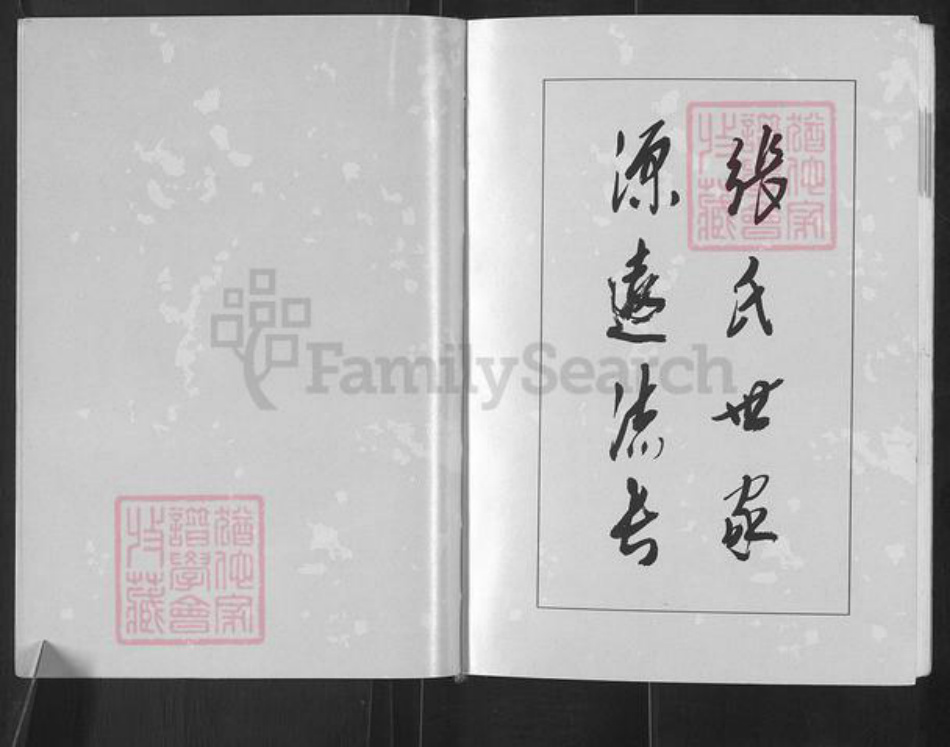 張氏世家
源遠流长
猶他家
譜學會
收藏
FamilySearch
猶他家
譜學會
收藏